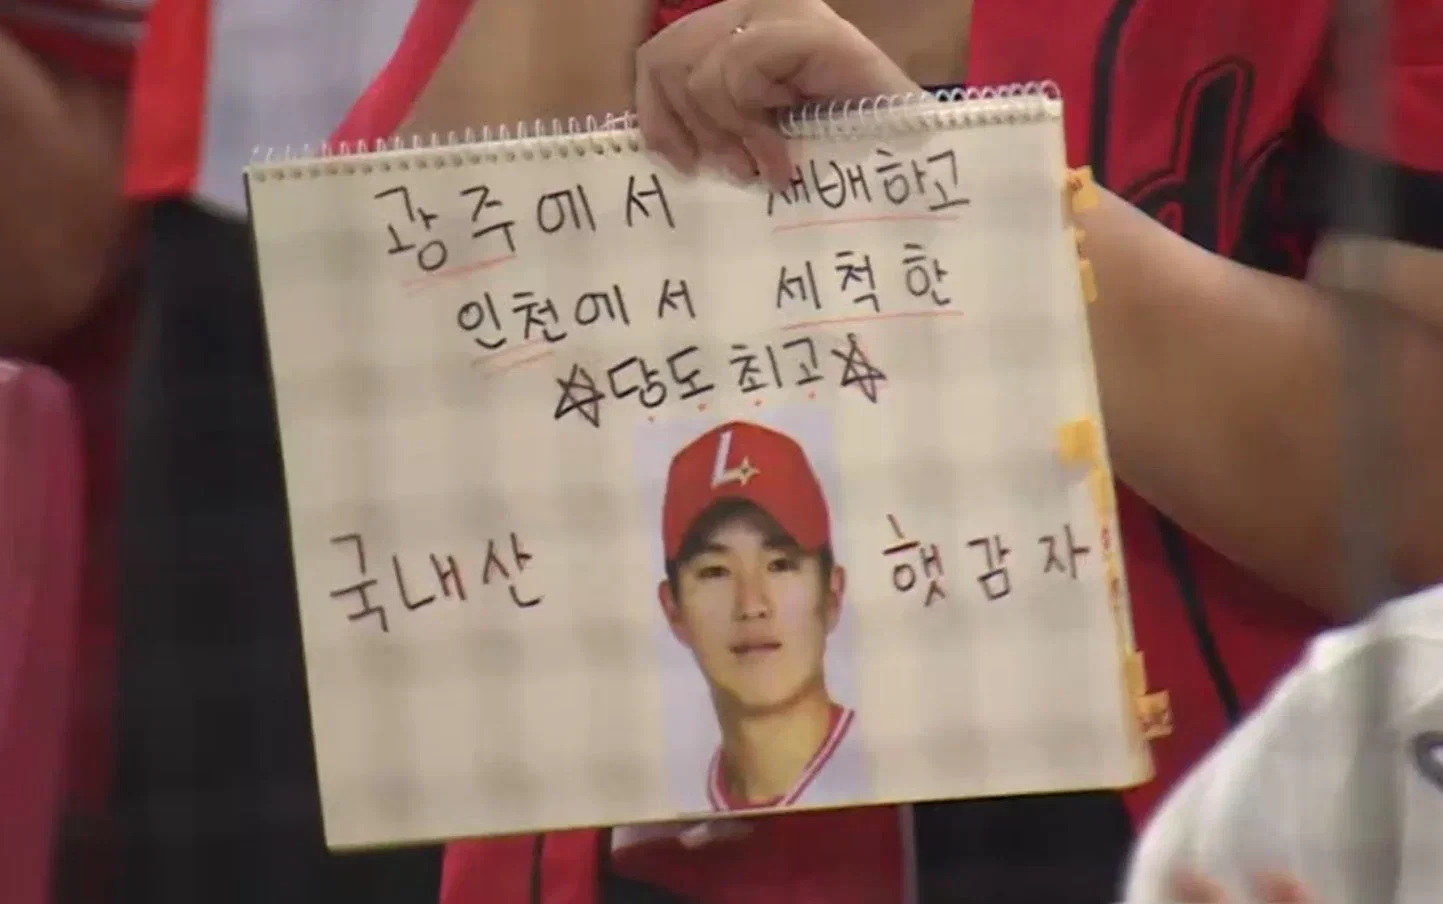 광주에서 재배하고
인천에서 세척한
☆당도최고☆
국내산 햇감자
L